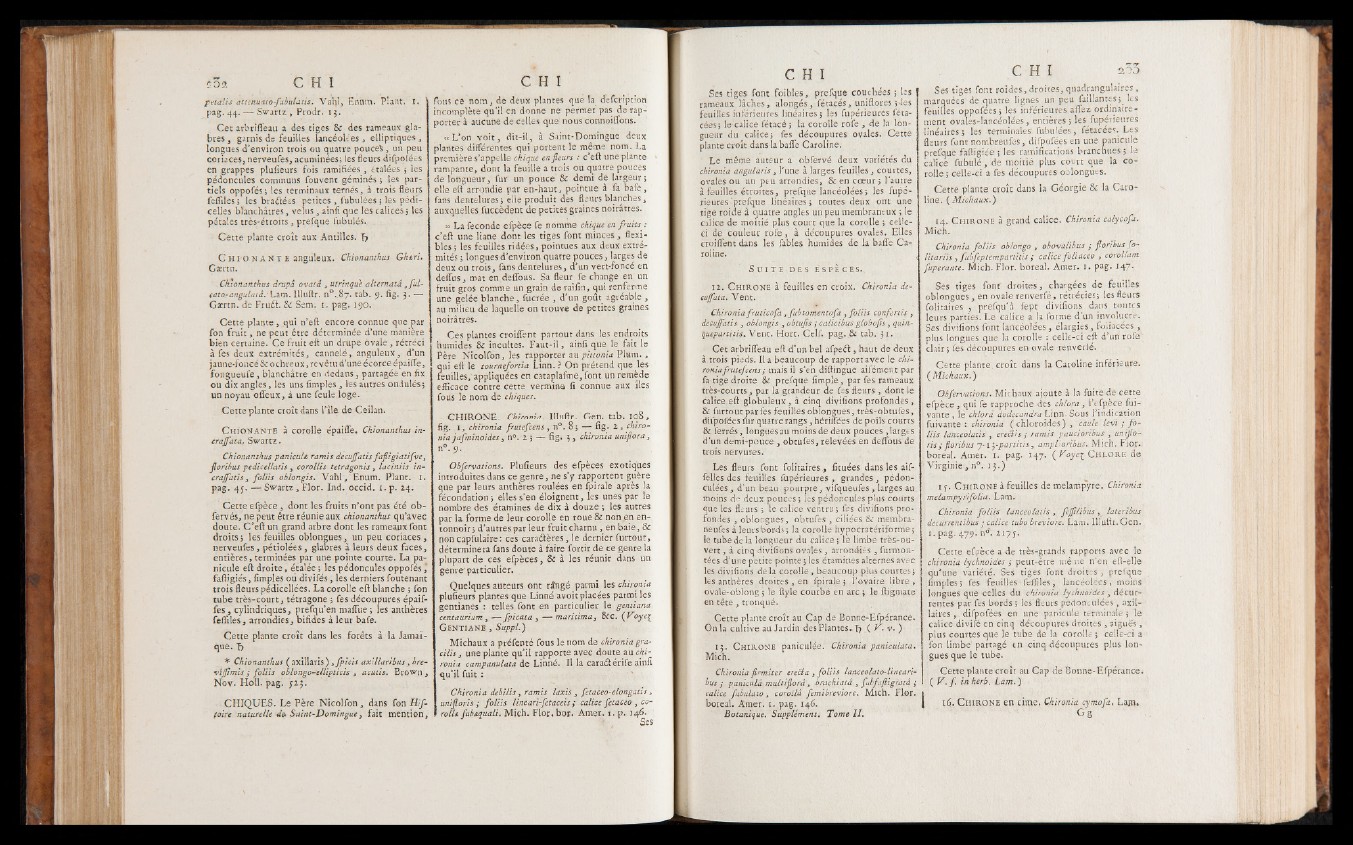 232 C H I
petalis attenuato-subulatis. Vahl, Enum. Plant. 1.
pag. 44. — Swartz, Prodr. 13.
Cet arbriſſeau a des tiges & des rameaux gla-
bres, garnis de feuilles lancéolées, elliptiques,
longues d'environ trois ou quatre pouces, un peu
coriaces, nerveuſes, acuminées; les fleurs diſpoſées
en grappes pluſieurs fois ramifiées, étalées; les
pédoncules communs ſouvent géminés; les par-
tiels oppoſés; les terminaux ternés, à trois fleurs
ſeſſiles; les bractées petites, ſubulées; les pédi-
celles blanchâtres, velus, ainſi que les calices; les
pétales très-étroits, preſque ſubulés.
Cette plante croît aux Antilles. ♄
CHIONANTE anguleux. Chionanthus Gheri.
Gærtn.
Chionanthus drupâ ovatâ, utrinquè alternatâ, ſul-
cato-angulatâ. Lam. Illuſtr. n°. 87. tab. 9. fig. 3. —
Gærtn. de Fruct. & Sem. 1. pag. 190.
Cette plante, qui n'eſt encore connue que par
ſon fruit, ne peut être déterminée d'une manière
bien certaine. Ce fruit eſt un drupe ovale, rétréci
à ſes deux extrémités, cannelé, anguleux, d'un
jaune-foncé & ochreux, revêtu d'une écorce épaiſſe,
fongueuſe, blanchâtre en dedans, partagée en ſix
ou dix angles, les uns ſimples, les autres ondulés;
un noyau oſſeux, à une ſeule loge.
Cette plante croît dans l'île de Ceilan.
CHIONANTE à corolle épaiſſe. Chionanthus in-
craſſata. Swartz.
Chionanthus paniculæ ramis decuſſatis faſtigiatiſve,
floribus pedicellatis, corollis tetragonis, laciniis in-
craſſatis, foliis oblongis. Vahl, Enum. Plane. 1.
pag. 45. — Swartz, Flor. Ind. occid. 1. p. 24.
Cette eſpèce, dont les fruits n'ont pas été ob-
ſervés, ne peut être réunie aux chionanthus qu'avec
doute. C'eſt un grand arbre dont les rameaux ſont
droits; les feuilles oblongues, un peu coriaces,
nerveuſes, pétiolées, glabres à leurs deux faces,
entières, terminées par une pointe courte. La pa-
nicule eſt droite, étalée; les pédoncules oppoſés,
faſtigiés, ſimples ou diviſés, les derniers ſoutenant
trois fleurs pédicellées. La corolle eſt blanche; ſon
tube très-court, tétragone; ſes découpures épaiſ-
ſes, cylindriques, preſqu'en maſſue; les anthères
ſeſſiles, arrondies, bifides à leur baſe.
Cette plante croît dans les forêts à la Jamaï-
que. ♄
* Chionanthus (axillaris), ſpicis axillaribus, bre-
viſſimis; foliis oblongo-ellipticis, acutis. Brown,
Nov. Holl. pag. 523.
CHIQUES. Le Père Nicolſon, dans ſon Hiſ-
toire naturelle de Saint-Domingue, fait mention,
C H I
ſous ce nom, de deux plantes que la deſcription
incomplète qu'il en donne ne permet pas de rap-
porter à aucune de celles que nous connoiſſons.
« L'on voit, dit-il, à Saint-Domingue deux
plantes différentes qui portent le même nom. La
première s'appelle chique en fleurs : c'eſt une plante
rampante, dont la feuille a trois ou quatre pouces
de longueur, ſur un pouce & demi de largeur;
elle eſt arrondie par en-haut, pointue à ſa baſe,
ſans dentelures; elle produit des fleurs blanches,
auxquelles ſuccèdent de petites graines noirâtres.
« La ſeconde eſpèce ſe nomme chique en fruits :
c'eſt une liane dont les tiges ſont minces, flexi-
bles; les feuilles ridées, pointues aux deux extré-
mités; longues d'environ quatre pouces, larges de
deux ou trois, ſans dentelures, d'un vert-foncé en
deſſus, mat en deſſous. Sa fleur ſe change en un
fruit gros comme un grain de raiſin, qui renferme
une gelée blanche, ſucrée, d'un goût agréable,
au milieu de laquelle on trouve de petites graines
noirâtres.
Ces plantes croiſſent partout dans les endroits
humides & incultes. Faut-il, ainſi que le fait le
Père Nicolſon, les rapporter au pittonia Plum.,
qui eſt le tournefortia Linn.? On prétend que les
feuilles, appliquées en cataplaſme, ſont un remède
efficace contre cette vermine ſi connue aux îles
ſous le nom de chiques.
CHIRONE. Chironia. Illuſtr. Gen. tab. 108,
fig. 1, chironia fruteſcens, n°. 83 — fig. 2, chiro-
nia jaſminoides, n°. 2; — fig. 3, chironia uniflora,
n°. 9.
Obſervations. Pluſieurs des eſpèces exotiques
introduites dans ce genre, ne s'y rapportent guère
que par leurs anthères roulées en ſpirale après la
fécondation; elles s'en éloignent, les unes par le
nombre des étamines de dix à douze; les autres
par la forme de leur corolle en roue & non en en-
tonnoir; d'autres par leur fruit charnu, en baie, &
non capſulaire: ces caractères, le dernier ſurtout,
déterminera ſans doute à faire ſortir de ce genre la
plupart de ces eſpèces, & à les réunir dans un
genre particulier.
Quelques auteurs ont rangé parmi les chironia
pluſieurs plantes que Linné avoit placées parmi les
gentianes : telles ſont en particulier le gentiana
centaurium, — ſpicata, — maritima, &c. (Voyez
GENTIANE, Suppl.)
Michaux a préſenté ſous le nom de chironia gra-
cilis, une plante qu'il rapporte avec doute au chi-
ronia campanulata de Linné. Il la caractériſe ainſi
qu'il ſuit :
Chironia debilis, ramis laxis, ſetaceo-elongatis,
unifloris; foliis lineari-ſetaceis; calice ſetaceo, co-
rollæ ſubæquali. Mich. Flor. bor. Amer. 1. p. 146.
Ses
C H I
Ses tiges ſont foibles, preſque couchées; les
rameaux lâches, alongés, ſétacés, uniflores; les
feuilles inférieures linéaires; les ſupérieures ſéta-
cées; le calice ſétacé; la corolle roſe, de la lon-
gueur du calice; ſes découpures ovales. Cette
plante croît dans la baſſe Caroline.
Le même auteur a obſervé deux variétés du
chironia angularis, l'une à larges feuilles, courtes,
ovales ou un peu arrondies, & en cœur; l'autre
à feuilles étroites, preſque lancéolées; les ſupé-
rieures preſque linéaires; toutes deux ont une
tige roide à quatre angles un peu membraneux; le
calice de moitié plus court que la corolle; celle-
ci de couleur roſe, à découpures ovales. Elles
croiſſent dans les ſables humides de la baſſe Ca-
roline.
SUITE DES ESPÈCES.
12. CHIRONE à feuilles en croix. Chironia de-
cuſſata. Vent.
Chironia fruticoſa, ſubtomentoſa, foliis confertis,
decuſſatis, oblongis, obtuſis; calicibus globoſis, quin-
quepartitis. Vent. Hort. Celſ. pag. & tab. 31.
Cet arbriſſeau eſt d'un bel aſpect, haut de deux
à trois pieds. Il a beaucoup de rapport avec le chi-
ronia fruteſcens; mais il s'en diſtingue aiſément par
ſa tige droite & preſque ſimple, par ſes rameaux
très-courts, par la grandeur de ſes fleurs, dont le
calice eſt globuleux, à cinq diviſions profondes,
& ſurtout par ſes feuilles oblongues, très-obtuſes,
diſpoſées ſur quatre rangs, hériſſées de poils courts
& ſerrés, longues au moins de deux pouces, larges
d'un demi-pouce, obtuſes, relevées en deſſous de
trois nervures.
Les fleurs ſont ſolitaires, ſituées dans les aiſ-
ſelles des feuilles ſupérieures, grandes, pédon-
culées, d'un beau pourpre, viſqueuſes, larges au
moins de deux pouces; les pédoncules plus courts
que les fleurs; le calice ventru; ſes diviſions pro-
fondes, oblongues, obtuſes, ciliées & membra-
neuſes à leurs bords; la corolle hypocratériforme;
le tube de la longueur du calice; le limbe très-ou-
vert, à cinq diviſions ovales, arrondies, ſurmon-
tées d'une petite pointe; les étamines alternes avec
les diviſions de la corolle, beaucoup plus courtes;
les anthères droites, en ſpirale; l'ovaire libre,
ovale-oblong; le ſtyle courbé en arc; le ſtigmate
en tête, tronqué.
Cette plante croît au Cap de Bonne-Eſpérance.
On la cultive au Jardin des Plantes. ♄ (V. v.)
13. CHIRONE paniculée. Chironia paniculata.
Mich.
Chironia firmiter erecta, foliis lanceolato-lineari-
bus; paniculâ multiflorâ, brachiatâ, ſubfaſtigiatâ;
calice ſubulato, corollâ ſemibreviore. Mich. Flor.
boreal. Amer. 1. pag. 146.
Botanique. Supplément. Tome II.
C H I 233
Ses tiges ſont roides, droites, quadrangulaires,
marquées de quatre lignes un peu ſaillantes; les
feuilles oppoſées; les inférieures aſſez ordinaire-
ment ovales-lancéolées, entières; les ſupérieures
linéaires; les terminales ſubulées, ſétacées. Les
fleurs ſont nombreuſes, diſpoſées en une panicule
preſque faſtigiée; les ramifications branchues; le
calice ſubulé, de moitié plus court que la co-
rolle; celle-ci a ſes découpures oblongues.
Cette plante croît dans la Géorgie & la Caro-
line. (Michaux.)
14. CHIRONE à grand calice. Chironia calycoſa.
Mich.
Chironia foliis oblongo, obovalibus; floribus ſo-
litariis, ſubſeptempartitis; calice foliaceo, corollam
ſuperante. Mich. Flor. boreal. Amer. 1. pag. 147.
Ses tiges ſont droites, chargées de feuilles
oblongues, en ovale renverſé, rétrécies; les fleurs
ſolitaires, preſqu'à ſept diviſions dans toutes
leurs parties. Le calice a la forme d'un involucre.
Ses diviſions ſont lancéolées, élargies, foliacées,
plus longues que la corolle : celle-ci eſt d'un roſe
clair; ſes découpures en ovale renverſé.
Cette plante croît dans la Caroline inférieure.
(Michaux.)
Obſervations. Michaux ajoute à la ſuite de cette
eſpèce, qui ſe rapproche des chlora, l'eſpèce ſui-
vante, le chlora dodecandra Linn. Sous l'indication
ſuivante : chironia (chloroides), caule levi; fo-
liis lanceolatis, erectis; ramis paucioribus, uniflo-
ris; floribus 7-13-partitis, ampl-oribus. Mich. Flor.
boreal. Amer. 1. pag. 147. (Voyez CHLORE de
Virginie, n°. 13.)
15. CHIRONE à feuilles de melampyre. Chironia
melampyrifolia. Lam.
Chironia foliis lanceolatis, ſeſſilibus, lateribus
decurrentibus; calice tubo breviore. Lam. Illuſtr. Gen.
1. pag. 479. n°. 2175.
Cette eſpèce a de très-grands rapports avec le
chironia lychnoides; peut-être même n'en eſt-elle
qu'une variété. Ses tiges ſont droites, preſque
ſimples; ſes feuilles ſeſſiles, lancéolées, moins
longues que celles du chironia lychnoides, décur-
rentes par ſes bords; les fleurs pédonculées, axil-
laires, diſpoſées en une panicule terminale; le
calice diviſé en cinq découpures droites, aiguës,
plus courtes que le tube de la corolle; celle-ci a
ſon limbe partagé en cinq découpures plus lon-
gues que le tube.
Cette plante croît au Cap de Bonne-Eſpérance.
(V. ſ. in herb. Lam.)
16. CHIRONE en cime. Chironia cymoſa. Lam.
G g